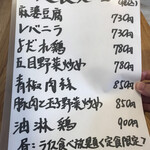 麻婆豆腐 730円
レバニラ 730円
よだれ鶏 780円
五目野菜炒め 780円
青椒肉絲 850円
豚肉と玉子野菜炒め 850円
油淋鶏 900円